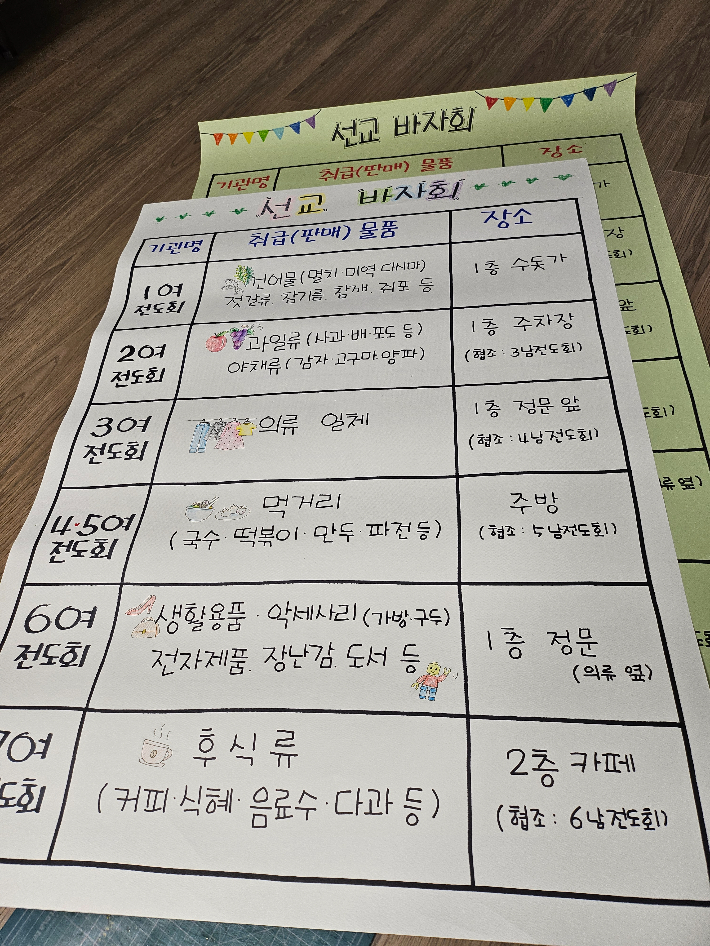 선교 바자회
기관명 취급(판매) 물품 장소
선교 바자회
기관명 취급(판매) 물품 장소
1여 전도회
건어물(멸치·미역 다시마)
젓갈류, 참기름, 참깨, 쥐포 등
1층 수돗가
2여 전도회
과일류(사과·배·포도 등)
야채류(감자 고구마 양파)
1층 주차장
(협조:3남전도회)
3여 전도회
의류 일체
1층 정문 앞
(협조:4남전도회)
4·5여 전도회
먹거리
(국수·떡볶이·만두·파전 등)
주방
(협조:5남전도회)
6여 전도회
생활용품·악세사리(가방·구두)
전자제품, 장난감, 도서 등
1층 정문
(의류 옆)
7여
도회
후식류
(커피·식혜·음료수·다과 등)
2층 카페
(협조:6남전도회)
가
장
회)
앞
도회)
류 옆)